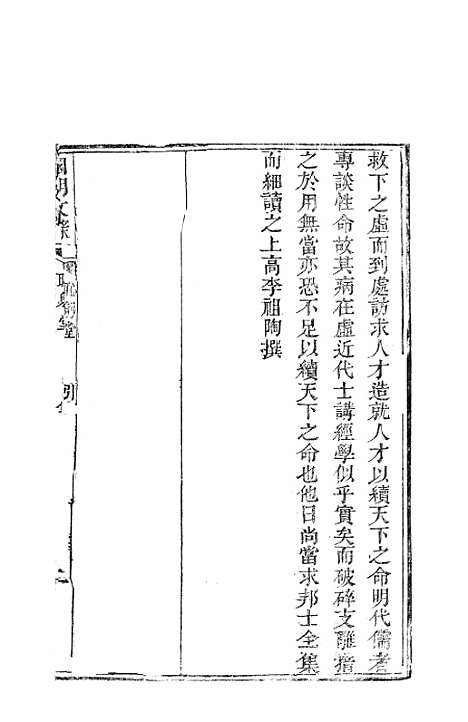 救下之虛而到處訪求人才造就人才以續天下之命明代儒者
專談性命故其病在虛近代士講經學似乎實矣而破碎支離揩
之於用無當亦恐不足以續天下之命也他日尚當求邦士全集
而細讀之上高李祖陶撰
國朝文錄
引